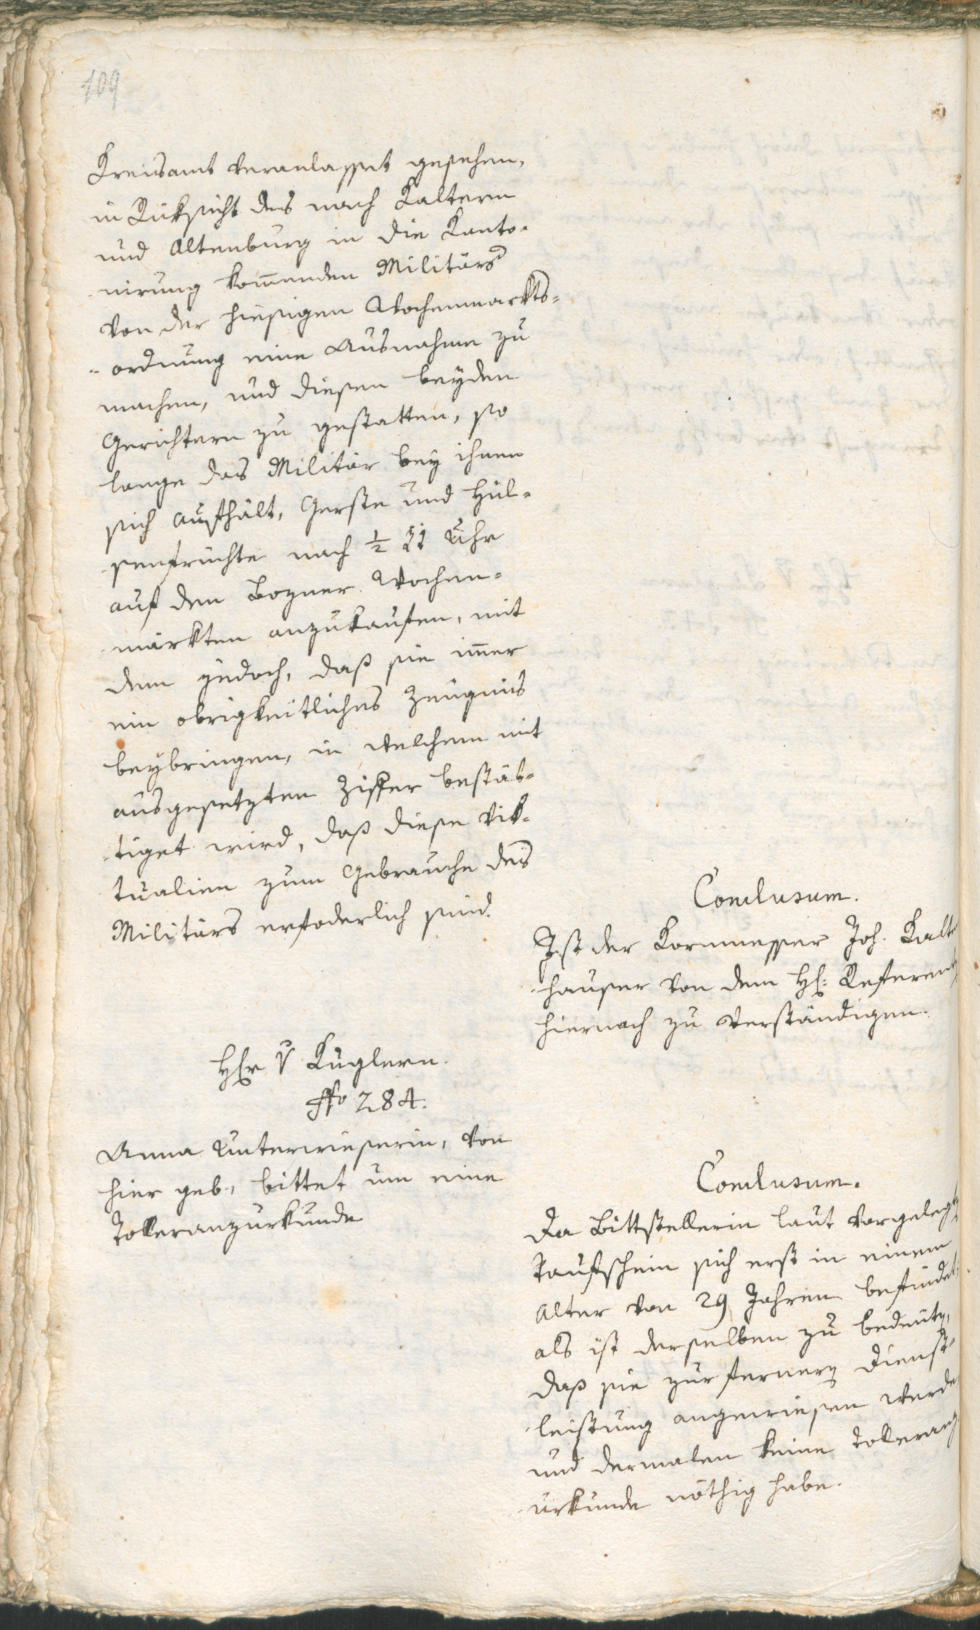 109
Kreisamt veranlasset gesehen,
in Rüksicht des nach Kaltern
und Altenburg in die Kanto-
nirung kom̄enden Militärs
von der hiesigen Wochenmarkts-
-ordnung eine Ausnahme zu
machen, und diesen beyden
Gerichtern zu gestatten, so
lange das Militär bey ihnen
sich aufhält, Gerste und Hül-
senfrüchte nach ½ 11 Uhr
auf den Bozner Wochen-
märkten anzukaufen, mit
dem jedoch, daß sie im̄er
ein obrigkeitliches Zeugnis
beybringen, in welchem mit
ausgesetzten Ziffer bestät-
tiget wird, daß diese Vik-
tualien zum Gebrauche des
Militärs erfoderlich sind.
Conclusum.
Ist der Kornmesser Joh. Kalt
hauser von dem H: Referent
hiernach zu verständigen.
Hr v Kuglern.
No 284.
Anna Unterwieserin, von
hier geb, bittet um eine
Tolleranzurkunde
Conclusum.
Da Bittstellerin laut vorgelegt
Taufschein sich erst in einem
Alter von 29 Jahren befindet,
als ist derselben zu bedeuten,
daß sie zur fernern Dienst-
leistung angewiesen werde
und dermalen keine Toleranz
urkunde nöthig habe.